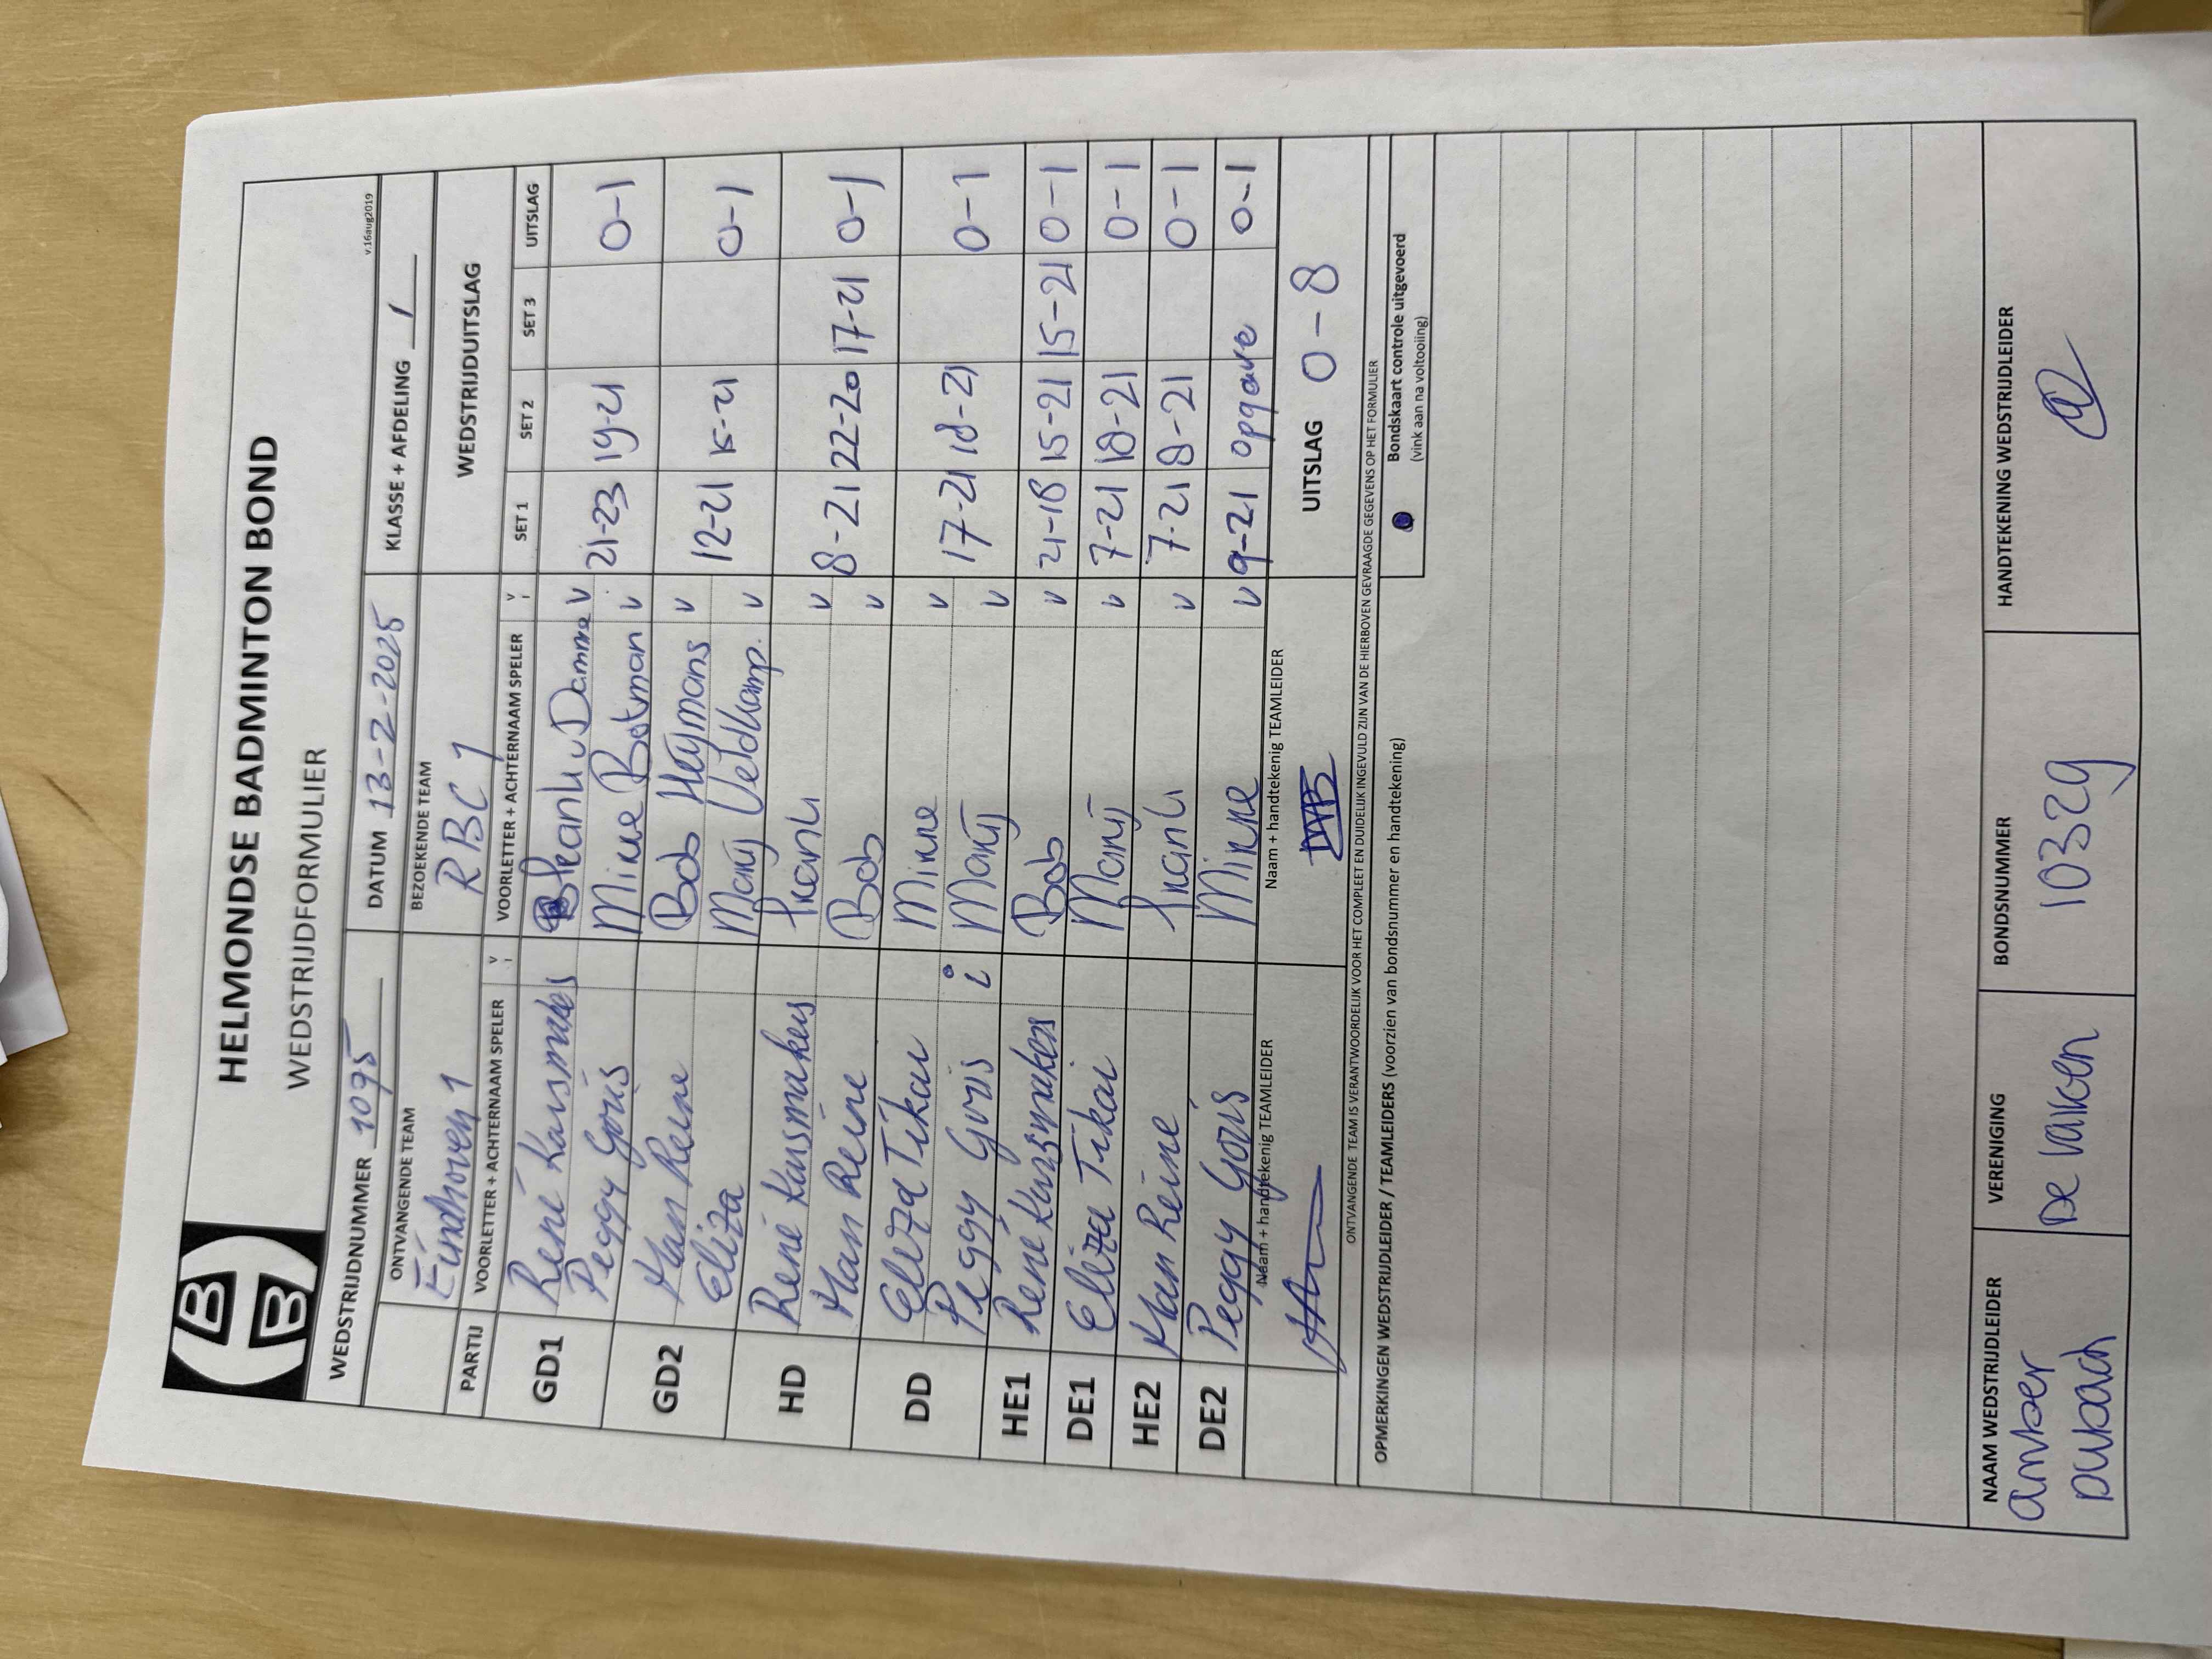 HELMONDSE BADMINTON BOND
WEDSTRIJDFORMULIER
v.16aug2019
WEDSTRIJDNUMMER 1095 DATUM 13-2-2025 KLASSE + AFDELING 1
ONTVANGENDE TEAM BEZOEKENDE TEAM WEDSTRIJDUITSLAG
Eindhoven 1 RBC 1
PARTIJ VOORLETTER + ACHTERNAAM SPELER V VOORLETTER + ACHTERNAAM SPELER V SET 1 SET 2 SET 3 UITSLAG
GD1 René Karsmakers v Damme v
Peggy Goris Minne Botman v 21-23 19-21 0-1
GD2 Han Reine Bob Heymans v
Eliza Manij Veldkamp. v 12-21 15-21 0-1
HD René Karsmakers v
Han Reine Bob v 8-21 22-20 17-21 0-1
DD Eliza Tikai Minne v
Peggy Goris i Manij v 17-21 18-21 0-1
HE1 René Karsmakers Bob v 21-18 15-21 15-21 0-1
DE1 Eliza Tikai Manij v 7-21 18-21 0-1
HE2 Han Reine v 7-21 8-21 0-1
DE2 Peggy Goris Minne v 9-21 opgave 0-1
Naam + handtekenig TEAMLEIDER Naam + handtekenig TEAMLEIDER UITSLAG 0-8
ONTVANGENDE TEAM IS VERANTWOORDELIJK VOOR HET COMPLEET EN DUIDELIJK INGEVULD ZIJN VAN DE HIERBOVEN GEVRAAGDE GEGEVENS OP HET FORMULIER
OPMERKINGEN WEDSTRIJDLEIDER / TEAMLEIDERS (voorzien van bondsnummer en handtekening)
Bondskaart controle uitgevoerd
(vink aan na voltooiing)
NAAM WEDSTRIJDLEIDER VERENIGING BONDSNUMMER HANDTEKENING WEDSTRIJDLEIDER
Amber De Valken 10329